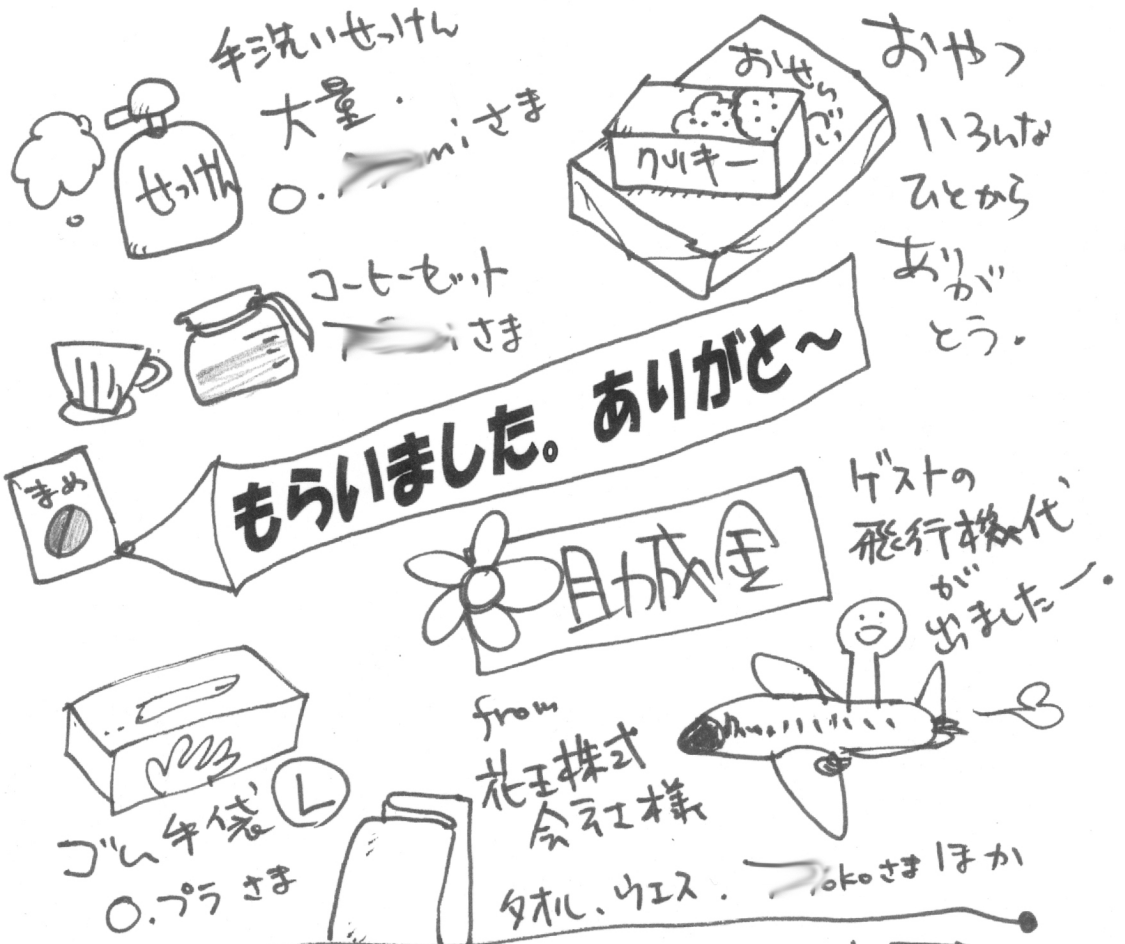 手洗いせっけん
大量.
miさま
せっけん
おせち
クッキー
おやつ
いろんな
ひとから
あり
が
とう.
コーヒーセット
iさま
まめ
もらいました。ありがと〜
助成金
ゲストの
飛行機代
が
出ましたー.
from
花王株式
会社様
ゴム手袋 L
O.プラさま
タオル、ウエス.
okoさまほか